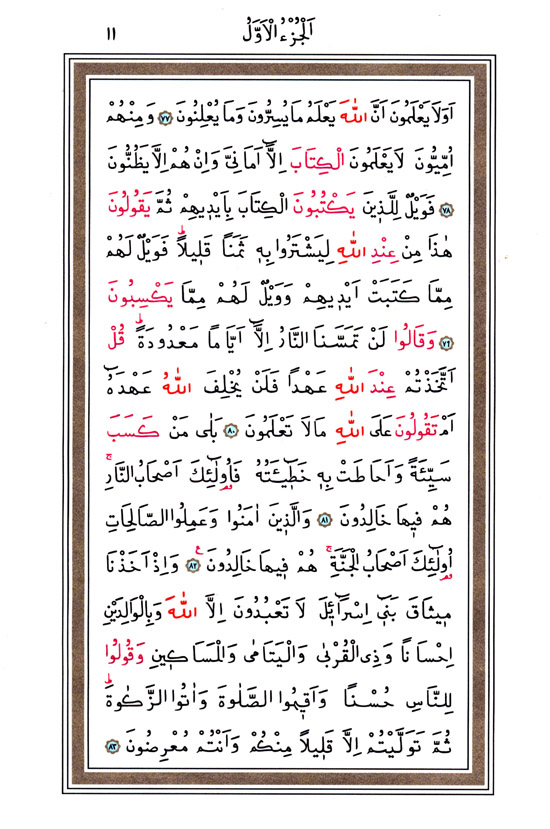 اَلْجُزْءُ الْاَوَّلُ ١١
اَوَلَا يَعْلَمُونَ اَنَّ اللّٰهَ يَعْلَمُ مَا يُسِرُّونَ وَمَا يُعْلِنُونَ ﴿٧٧﴾ وَمِنْهُمْ
اُمِّيُّونَ لَا يَعْلَمُونَ الْكِتَابَ اِلَّٓا اَمَانِيَّ وَاِنْ هُمْ اِلَّا يَظُنُّونَ
﴿٧٨﴾ فَوَيْلٌ لِلَّذ۪ينَ يَكْتُبُونَ الْكِتَابَ بِاَيْد۪يهِمْ ثُمَّ يَقُولُونَ
هٰذَا مِنْ عِنْدِ اللّٰهِ لِيَشْتَرُوا بِه۪ ثَمَنًا قَل۪يلًاۜ فَوَيْلٌ لَهُمْ
مِمَّا كَتَبَتْ اَيْد۪يهِمْ وَوَيْلٌ لَهُمْ مِمَّا يَكْسِبُونَ
﴿٧٩﴾ وَقَالُوا لَنْ تَمَسَّنَا النَّارُ اِلَّٓا اَيَّامًا مَعْدُودَةًۜ قُلْ
اَتَّخَذْتُمْ عِنْدَ اللّٰهِ عَهْدًا فَلَنْ يُخْلِفَ اللّٰهُ عَهْدَهُٓ
اَمْ تَقُولُونَ عَلَى اللّٰهِ مَا لَا تَعْلَمُونَ ﴿٨٠﴾ بَلٰى مَنْ كَسَبَ
سَيِّئَةً وَاَحَاطَتْ بِه۪ خَط۪ٓيـَٔتُهُ فَاُو۬لٰٓئِكَ اَصْحَابُ النَّارِۚ
هُمْ ف۪يهَا خَالِدُونَ ﴿٨١﴾ وَالَّذ۪ينَ اٰمَنُوا وَعَمِلُوا الصَّالِحَاتِ
اُو۬لٰٓئِكَ اَصْحَابُ الْجَنَّةِۚ هُمْ ف۪يهَا خَالِدُونَ ﴿٨٢﴾ۧ وَاِذْ اَخَذْنَا
م۪يثَاقَ بَن۪ٓي اِسْرَٓائ۪لَ لَا تَعْبُدُونَ اِلَّا اللّٰهَ وَبِالْوَالِدَيْنِ
اِحْسَانًا وَذِي الْقُرْبٰى وَالْيَتَامٰى وَالْمَسَاك۪ينِ وَقُولُوا
لِلنَّاسِ حُسْنًا وَاَق۪يمُوا الصَّلٰوةَ وَاٰتُوا الزَّكٰوةَۜ
ثُمَّ تَوَلَّيْتُمْ اِلَّا قَل۪يلًا مِنْكُمْ وَاَنْتُمْ مُعْرِضُونَ ﴿٨٣﴾